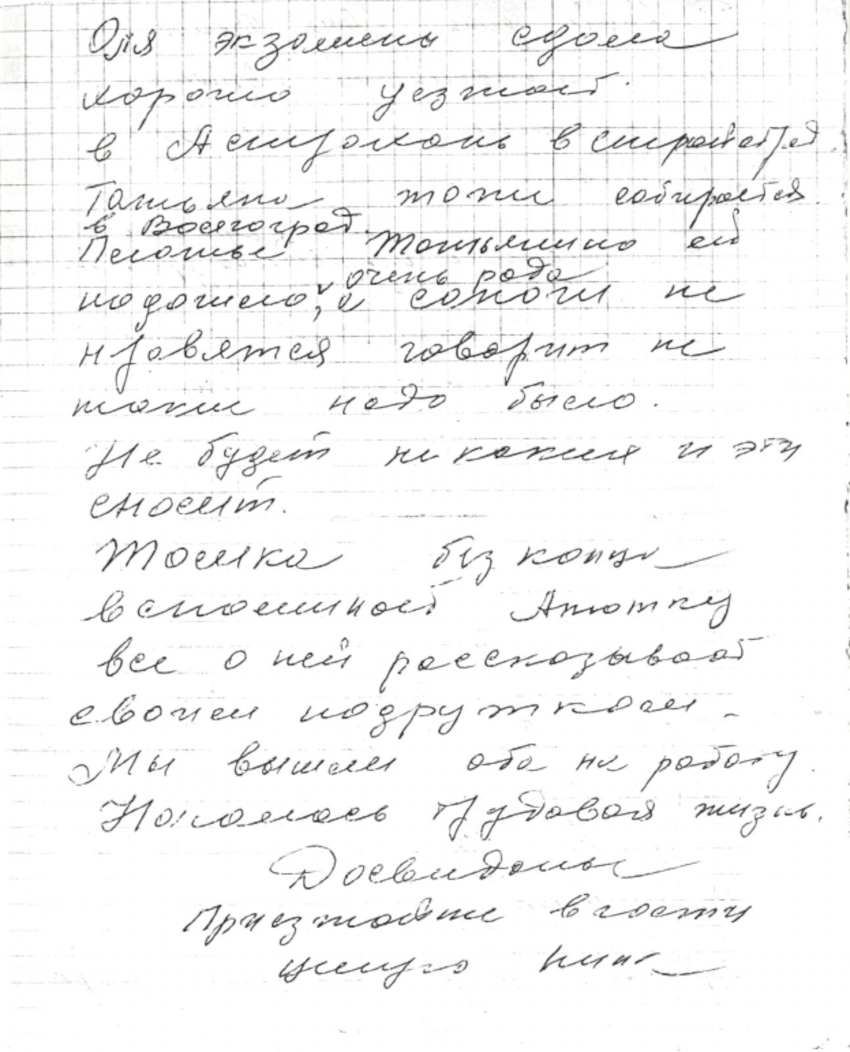 Оля экзамены сдала
хорошо уезжает.
в Астрахань в стройотряд.
Татьяна тоже собирается
в Волгоград.
Платье Татьянино ей
очень рада
подошло, а сапоги не
нравятся говорит не
такие надо было.
Не будет никаких и эти
сносит.
Томка без конца
вспоминает Анютку
все о ней рассказывает
своим подружкам.
Мы вышли оба на работу.
Началась трудовая жизнь.
Досвиданье
Приезжайте в гости
целую Нина